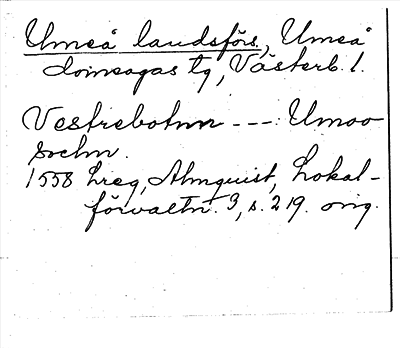 Umeå landsförs., Umeå
domsagas tg, Västerb. l.
Vestrebotnn --- Umoo
sochn.
1558 Lreg, Almquist, Lokal-
förvaltn. 3, s. 219. orig.